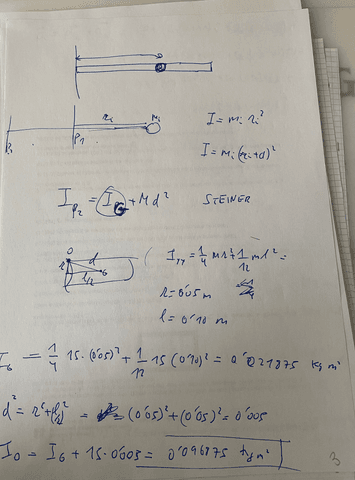 r_i m_i
P_2 P_1
I = m_i r_i²
I = m_i (r_i+d)²
I_P2 = I_G + M d² STEINER
O d R l/2 G
I_yy = 1/4 m r² + 1/12 m l² =
r = 0'05 m
l = 0'10 m
I_G = 1/4 15·(0'05)² + 1/12 15 (0'10)² = 0'021875 kg m²
d² = r² + (l/2)² = (0'05)² + (0'05)² = 0'005
I_O = I_G + 15·0'005 = 0'096875 kg m²
3